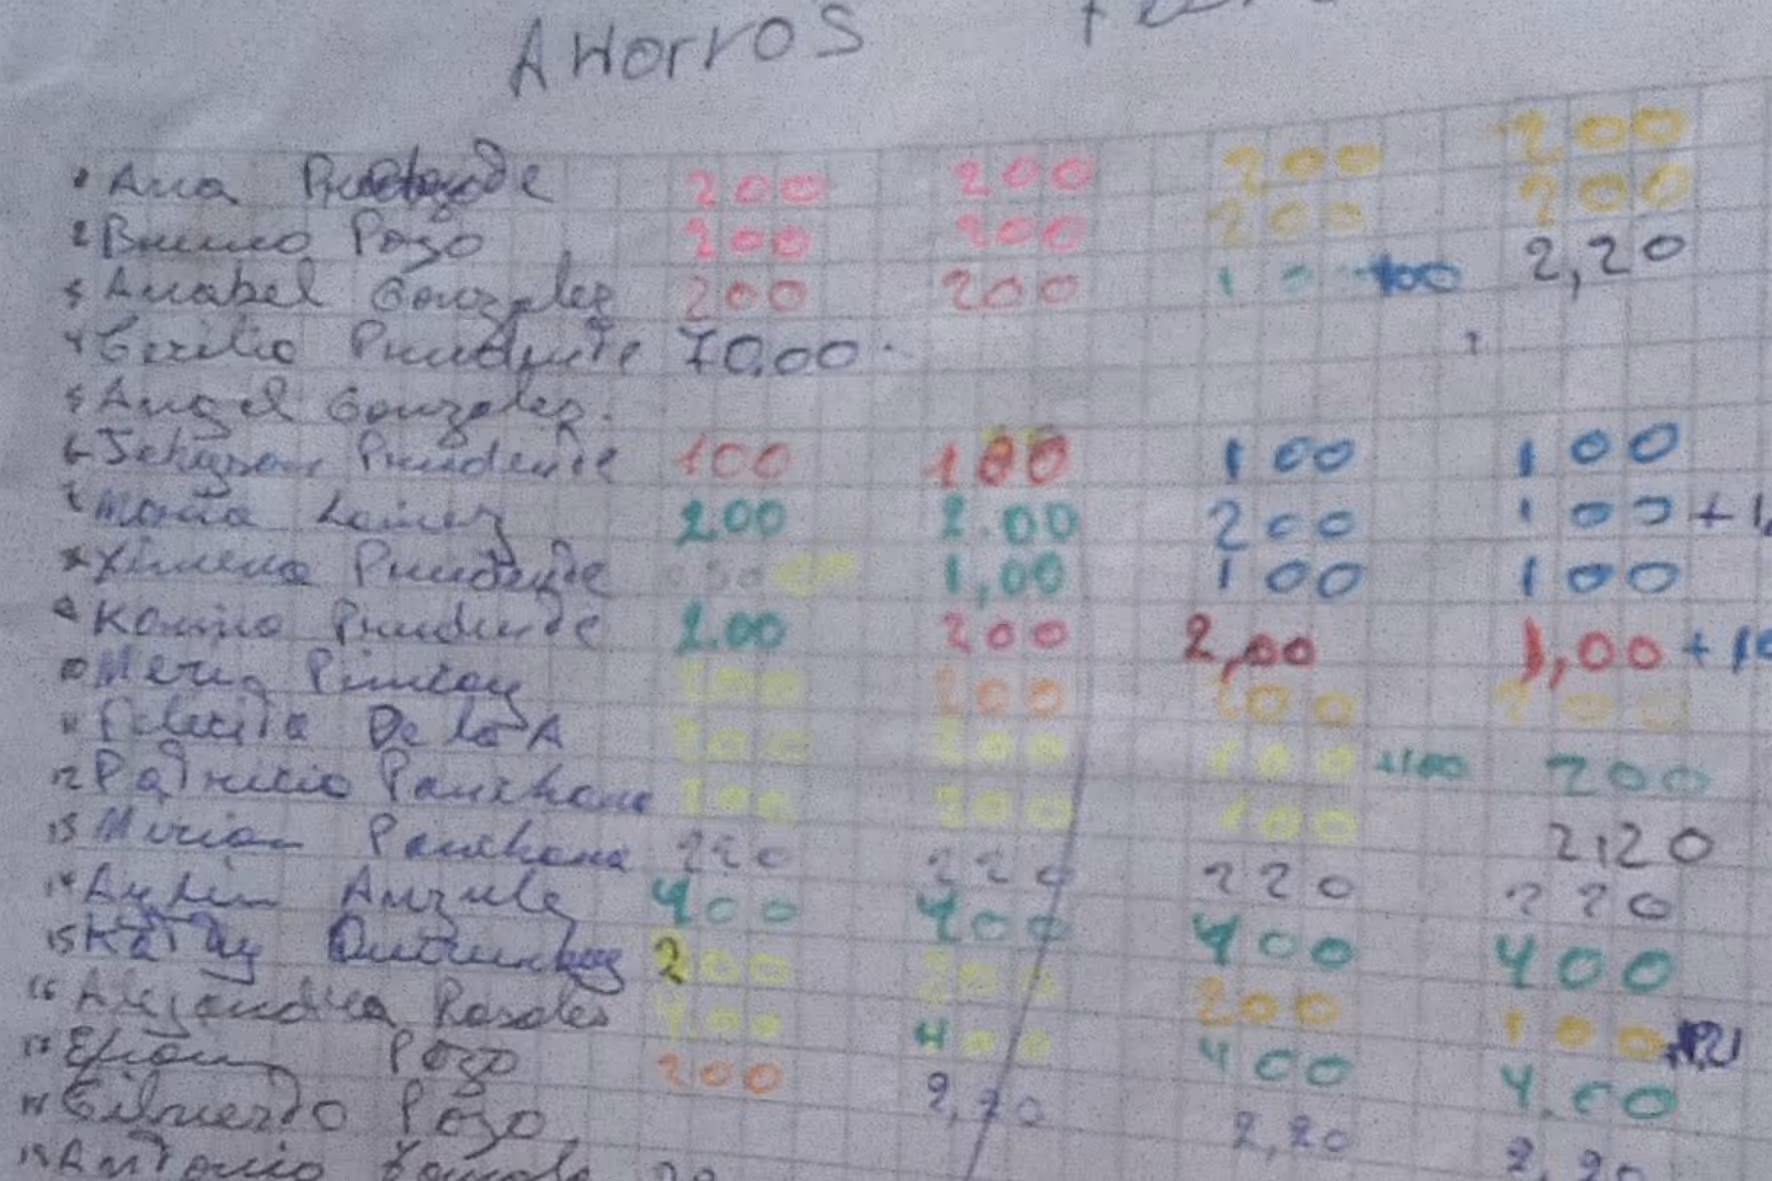 AHorros
1 Ana 200 200 200 200
2 Bruno Pozo 200 200 200 200
3 Anabel Gonzalez 200 200 100 2,20
4 Cecilio Prudente 70,00
5 Angel Gonzalez.
6 Jehyson Prudente 100 100 100 100
7 Maria Lainez 200 2.00 200 100 +
8 Ximena Prudente 1,00 100 100
9 Karina Prudente 2.00 200 2,00 1,00 + 10
10 Mery Pinto 200 200 200 200
11 Felicita De la A 200 200 100 +100 200
12 Patricio Panchana 200 200 100 2,20
13 Mirian Panchana 220 220 220 220
14 400 400 400 400
15 Katty 200 200 200 100
16 Alejandra Rosales 400 400 400 4.00
17 Efrain Pozo 200 2,20 2,20 2,20
18 Gilberto Pozo
19 Antonio